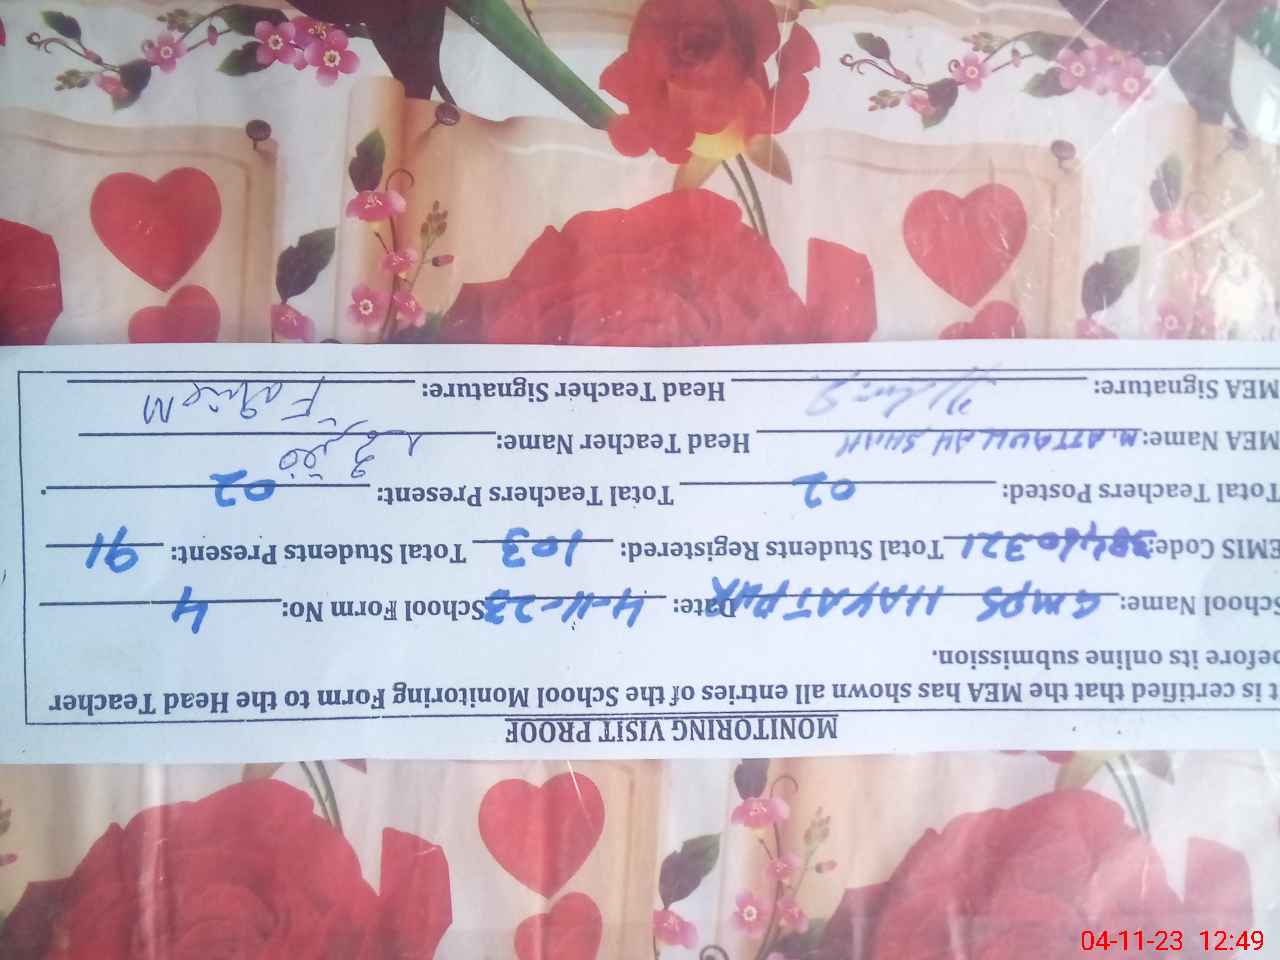 MONITORING VISIT PROOF
t is certified that the MEA has shown all entries of the School Monitoring Form to the Head Teacher
before its online submission.
School Name: GMPS HAYATPUR Date: 4-11-23 School Form No: 4
EMIS Code: 38460321 Total Students Registered: 103 Total Students Present: 91
Total Teachers Posted: 02 Total Teachers Present: 02.
MEA Name: M. ATTAULLAH SHAH Head Teacher Name:
MEA Signature: Head Teacher Signature:
04-11-23 12:49